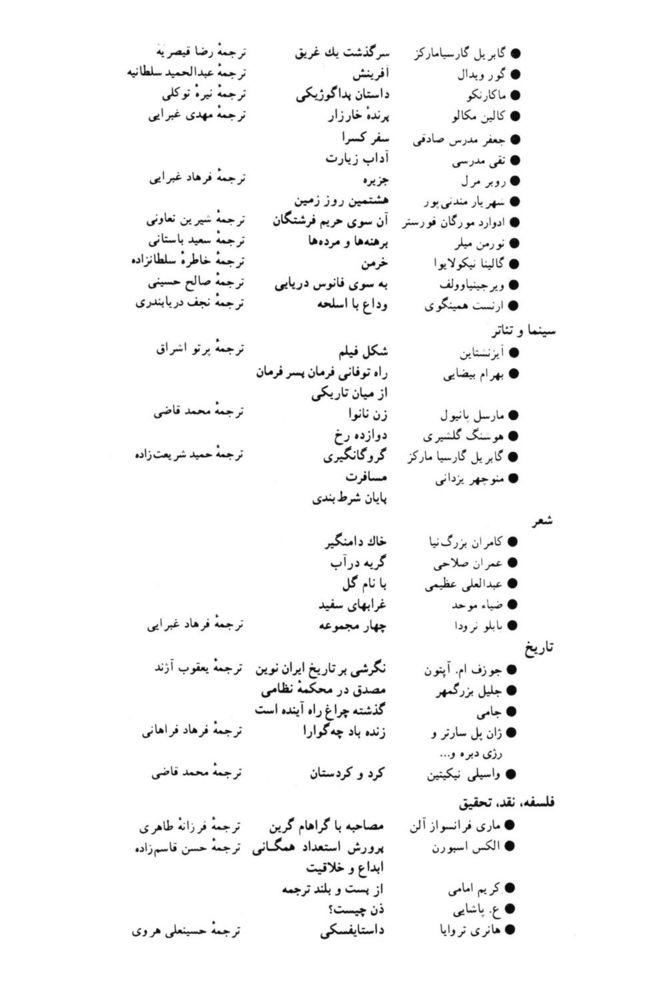 ● گابریل گارسیامارکز سرگذشت یك غریق ترجمهٔ رضا قیصریه
● گور ویدال آفرینش ترجمهٔ عبدالحمید سلطانیه
● ماکارنکو داستان پداگوژیکی ترجمهٔ نیرهٔ توکلی
● کالین مکالو پرندهٔ خارزار ترجمهٔ مهدی غبرایی
● جعفر مدرس صادقی سفر کسرا
● تقی مدرسی آداب زیارت
● روبر مرل جزیره ترجمهٔ فرهاد غبرایی
● شهریار مندنی‌پور هشتمین روز زمین
● ادوارد مورگان فورستر آن سوی حریم فرشتگان ترجمهٔ شیرین تعاونی
● نورمن میلر برهنه‌ها و مرده‌ها ترجمهٔ سعید باستانی
● گالینا نیکولایوا خرمن ترجمهٔ خاطرهٔ سلطانزاده
● ویرجینیاوولف به سوی فانوس دریایی ترجمهٔ صالح حسینی
● ارنست همینگوی وداع با اسلحه ترجمهٔ نجف دریابندری
سینما و تئاتر
● آیزنشتاین شکل فیلم ترجمهٔ پرتو اشراق
● بهرام بیضایی راه توفانی فرمان پسر فرمان
از میان تاریکی
● مارسل پانیول زن نانوا ترجمهٔ محمد قاضی
● هوسنگ گلشیری دوازده رخ
● گابریل گارسیا مارکز گروگانگیری ترجمهٔ حمید شریعت‌زاده
● منوچهر یزدانی مسافرت
پایان شرط‌بندی
شعر
● کامران بزرگ‌نیا خاك دامنگیر
● عمران صلاحی گریه درآب
● عبدالعلی عظیمی با نام گل
● ضیاء موحد غرابهای سفید
● پابلو نرودا چهار مجموعه ترجمهٔ فرهاد غبرایی
تاریخ
● جوزف ام. آپتون نگرشی بر تاریخ ایران نوین ترجمهٔ یعقوب آژند
● جلیل بزرگمهر مصدق در محکمهٔ نظامی
● جامی گذشته چراغ راه آینده است
● ژان پل سارتر و زنده باد چه‌گوارا ترجمهٔ فرهاد فراهانی
رژی دبره و...
● واسیلی نیکیتین کرد و کردستان ترجمهٔ محمد قاضی
فلسفه، نقد، تحقیق
● ماری فرانسواز آلن مصاحبه با گراهام گرین ترجمهٔ فرزانهٔ طاهری
● الکس اسبورن پرورش استعداد همگانی ترجمهٔ حسن قاسم‌زاده
ابداع و خلاقیت
● کریم امامی از پست و بلند ترجمه
● ع. پاشایی ذن چیست؟
● هانری تروایا داستایفسکی ترجمهٔ حسینعلی هروی